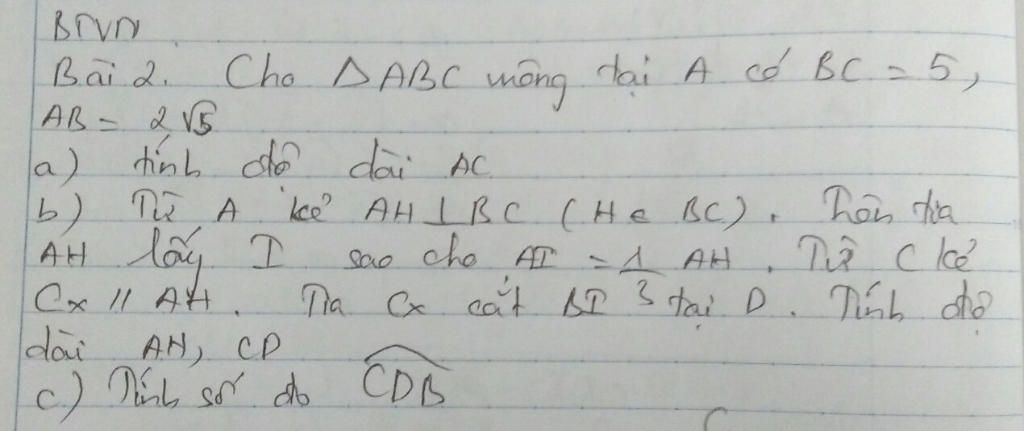 BTVN
Bài 2. Cho △ABC vuông tại A có BC = 5,
AB = 2√5
a) tính độ dài AC
b) Từ A kẻ AH ⊥ BC (H ∈ BC). Trên tia
AH lấy I sao cho AI = 1/3 AH. Từ C kẻ
Cx // AH. Tia Cx cắt BI tại D. Tính độ
dài AH, CD
c) Tính số đo \widehat{CDB}